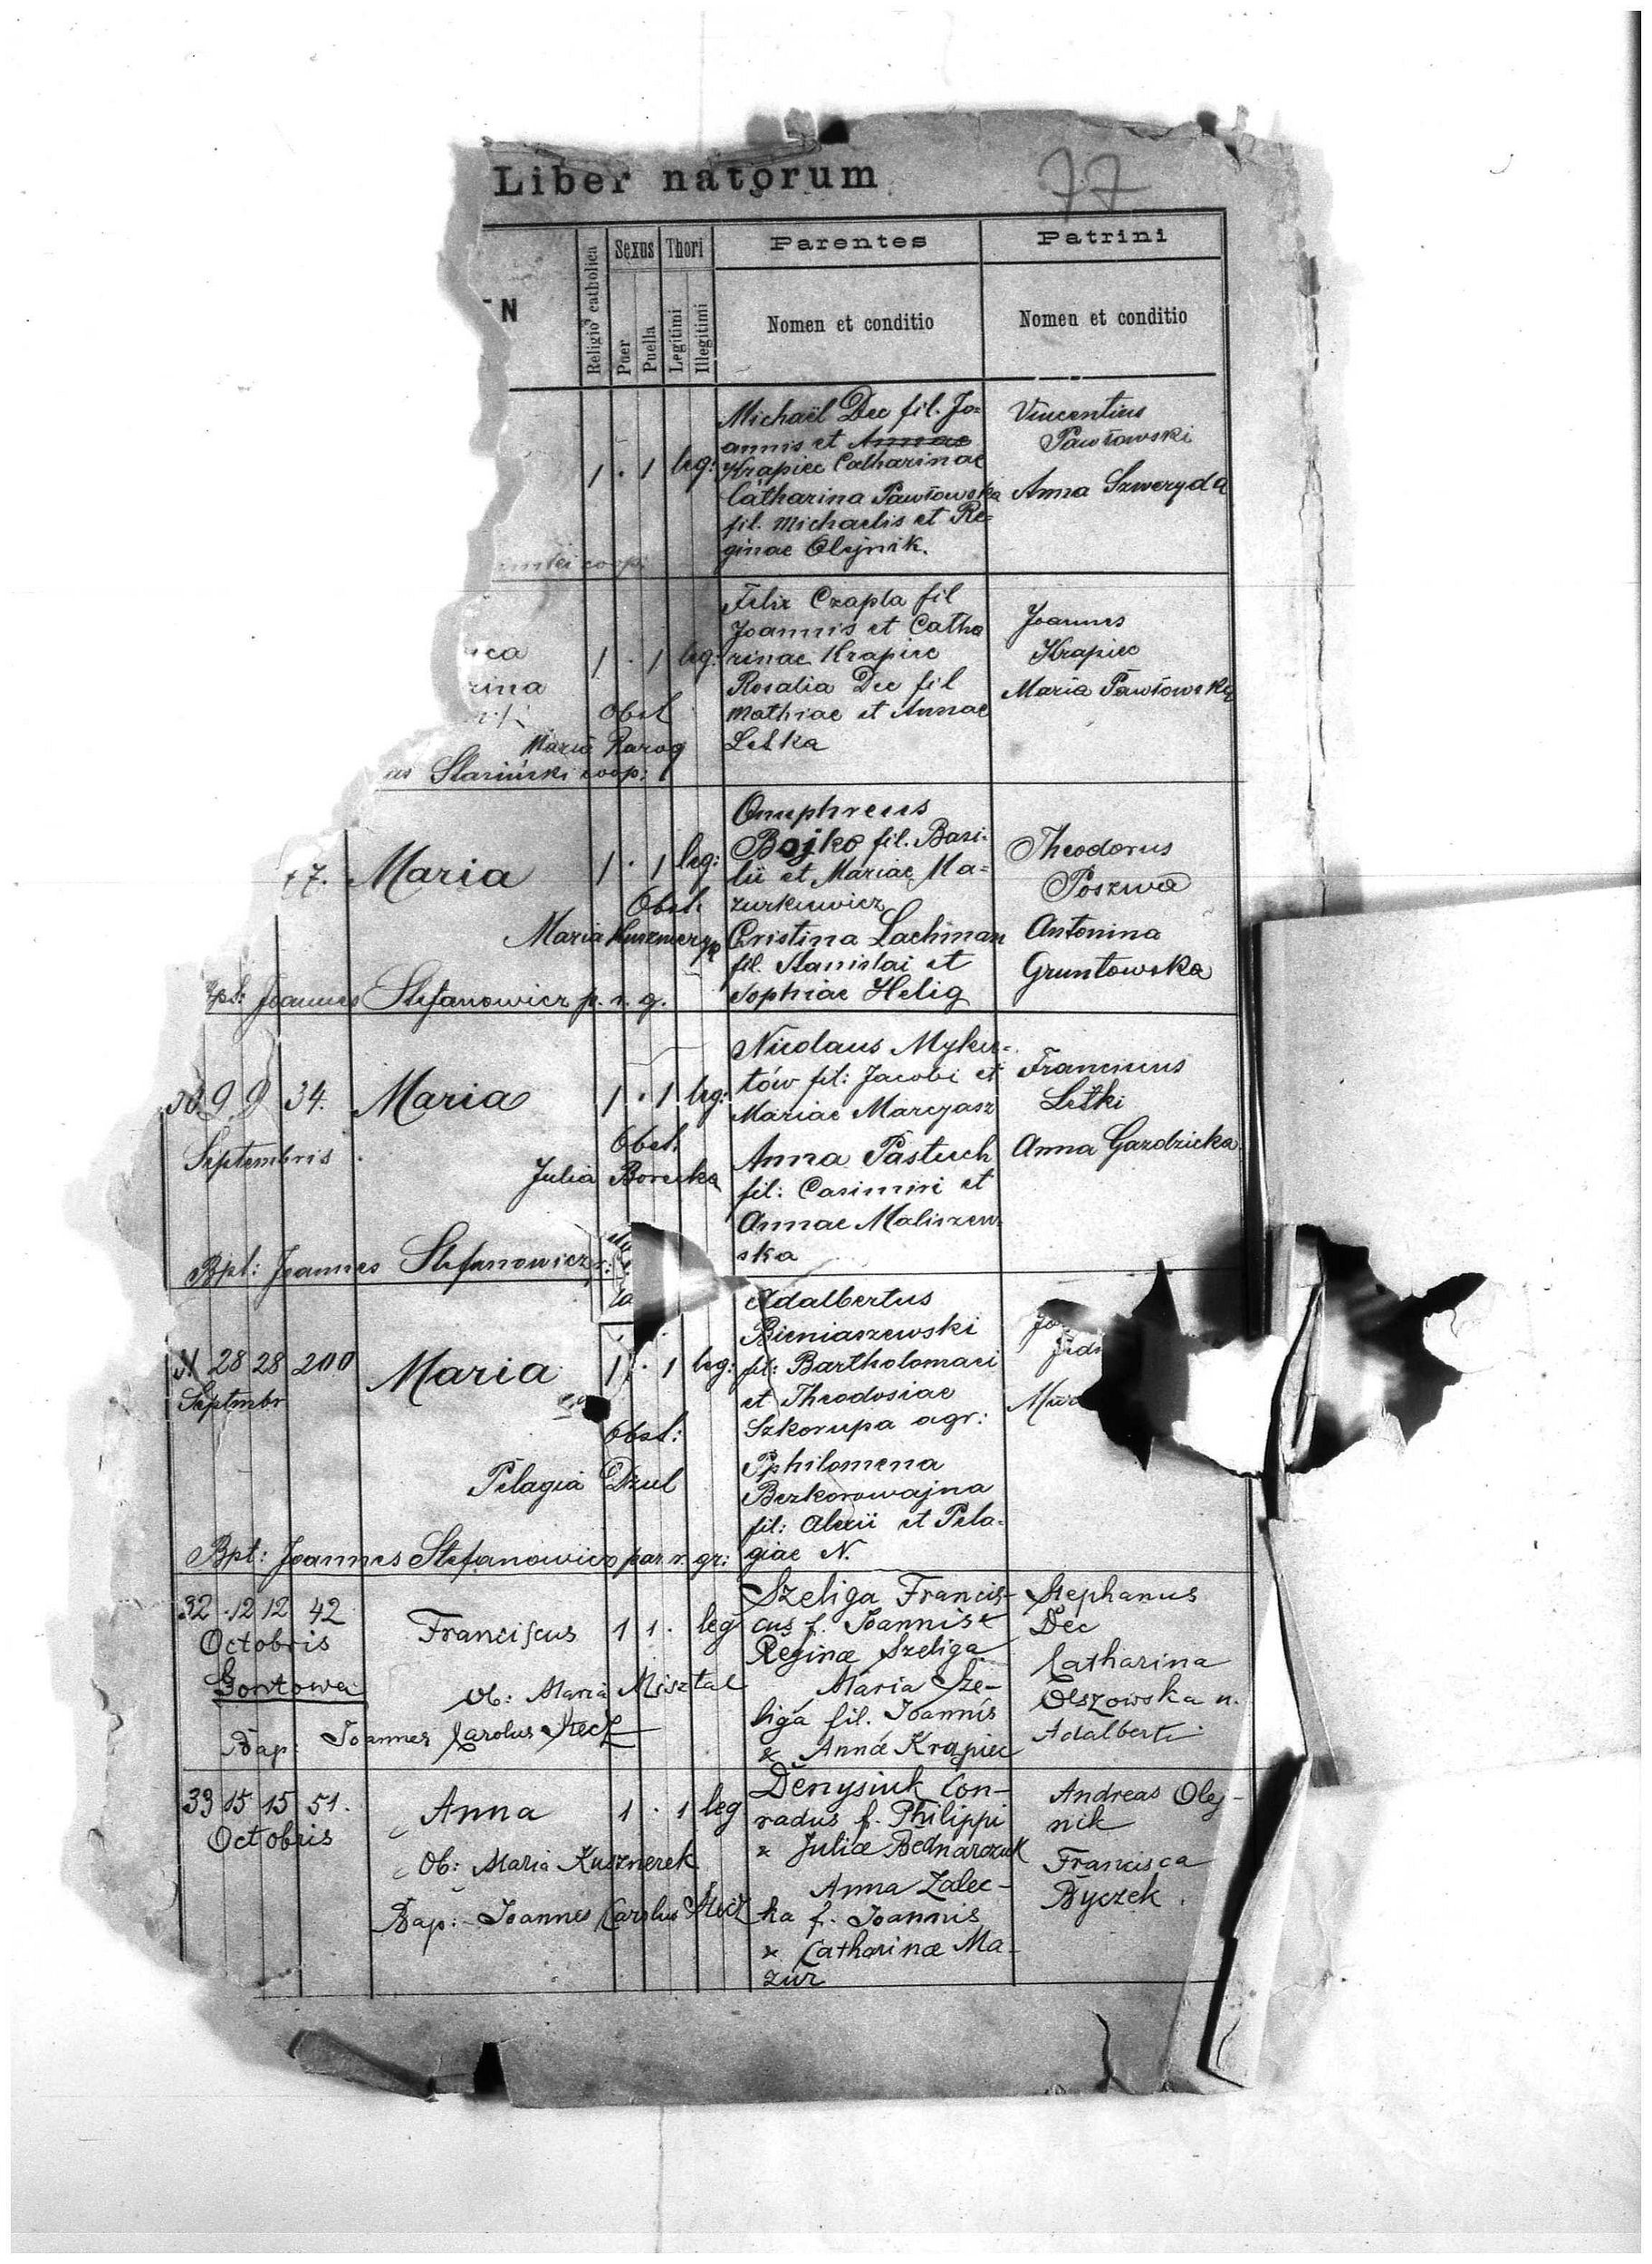 Liber natorum
77
N
Religio catholica
Sexus
Thori
Puer
Puella
Legitimi
Illegitimi
Parentes
Patrini
Nomen et conditio
Nomen et conditio
1 · 1 leg:
Michaël Dec fil. Jo=
annis et Annae
Krapiec Catharinae
Catharina Pawłowska
fil. Michaelis et Re=
ginae Olejnik.
Vincentius
Pawłowski
Anna Szweryda
coop:
rina
1 · 1 leg:
Obst
Maria Rarog
Stasiński coop:
Felix Czapla fil
Joannis et Catha
rinae Krapiec
Rosalia Dec fil
Mathiae et Annae
Letka
Joannes
Krapiec
Maria Pawłowska
7. Maria 1 · 1 leg:
Obst:
Maria Kuszneryk
Joannes Stefanowicz p. r. g.
Onuphreus
Bojko fil. Basi=
lii et Mariae Ma=
zurkiewicz
Cristina Lachman
fil. Stanislai et
Sophiae Helig
Theodorus
Poszwa
Antonina
Gruntowska
30. 9 9 34. Maria 1 · 1 leg:
Septembris
Obst:
Julia Borecka
Bpt: Joannes Stefanowicz
Nicolaus Myku=
tów fil: Jacobi et
Mariae Marcyasz
Anna Pastuch
fil: Casimiri et
Annae Maliszew
ska
Franciscus
Letki
Anna Gazdzicka
31 28 28 200 Maria 1 · 1 leg:
Septmbr
Obst:
Pelagia Dzul
Bpt: Joannes Stefanowicz par. r. gr:
Adalbertus
Bieniaszewski
fil: Bartholomaei
et Theodosiae
Szkorupa agr:
Pphilomena
Bezkorowajna
fil: Alexii et Pela=
giae N.
32 12 12 42 Franciscus 1 1 · leg
Octobris
Gontowa
Ob: Maria Misztal
Bap: Joannes Carolus Stecz
Szeliga Francis-
cus f. Joannis &
Reginæ Szeliga
Maria Sze-
liga fil. Joannis
& Annæ Krapiec
Stephanus
Dec
Catharina
Olszowska u.
Adalberti
33 15 15 51. Anna 1 · 1 leg
Octobris
Ob: Maria Kusznerek
Bap: Joannes Carolus Stecz
Denysiuk Con-
radus f. Philippi
& Juliæ Bednarczuk
Anna Zalec-
ka f. Joannis
& Catharinæ Ma-
zur
Andreas Olej-
nik
Francisca
Byczek.